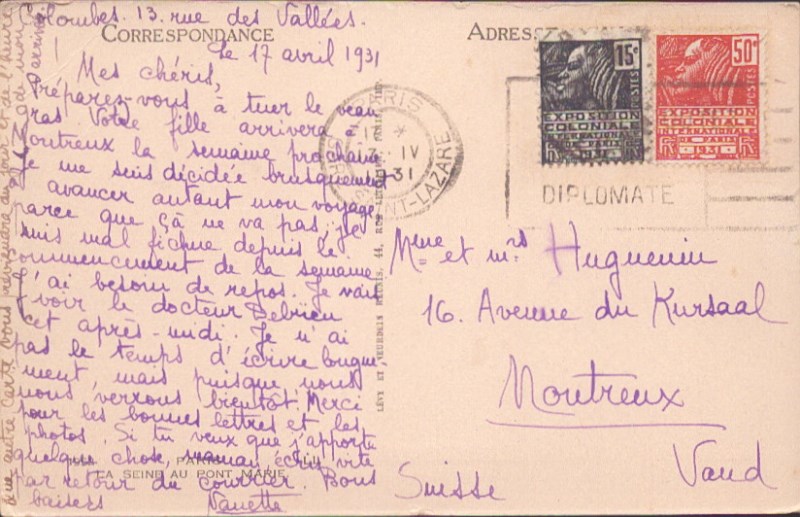 Colombes. 13. rue des Vallées.
CORRESPONDANCE
le 17 avril 1931
Mes chéris,
Préparez-vous à tuer le veau
gras. Votre fille arrivera à
Montreux la semaine prochaine
Je me suis décidée brusquement
avancer autant mon voyage
parce que çà ne va pas. Je
suis mal fichue depuis le
commencement de la semaine
J'ai besoin de repos. Je vais
voir le docteur
cet après-midi. Je n'ai
pas le temps d'écrire longue-
ment, mais puisque nous
nous verrons bientôt! Merci
pour les bonnes lettres et les
photos. Si tu veux que j'apporte
quelque chose, maman, écris vite
par retour du courrier. Bons
baisers
Nanette
PARIS
LA SEINE AU PONT MARIE
Une autre carte vous du jour et de l'heure
de mon
arrivée!
LÉVY ET NEURDEIN RÉUNIS, 44, RUE
ADRESSE
PARIS
17 *
IV
31
SAINT-LAZARE
15c
POSTES
EXPOSITION
COLONIALE
INTERNATIONALE
DE PARIS
1931
50c
POSTES
EXPOSITION
COLONIALE
INTERNATIONALE
DE PARIS
1931
DIPLOMATE
Mme et mrs Huguenin
16. Avenue du Kursaal
Montreux
Vaud
Suisse